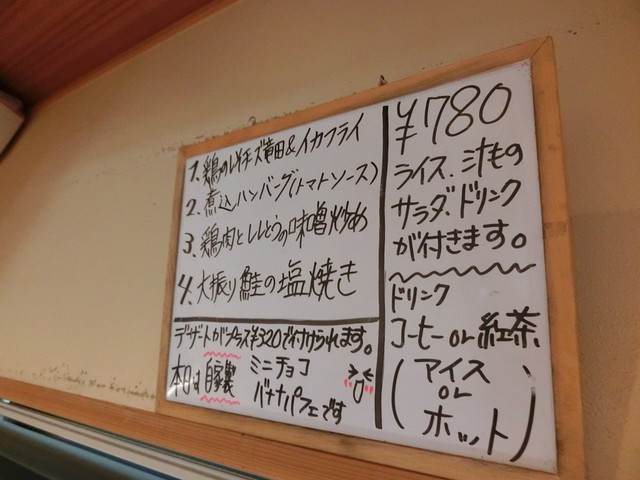 1. 鶏のレイチーズ竜田&イカフライ
2. 煮込ハンバーグ(トマトソース)
3. 鶏肉とししとうの味噌炒め
4. 大振り鮭の塩焼き
デザートがプラス¥320で付けられます。
本日は自家製 ミニチョコ
バナナパフェです
¥780
ライス、汁もの
サラダ、ドリンク
が付きます。
ドリンク
コーヒー or 紅茶
(アイス
or
ホット)